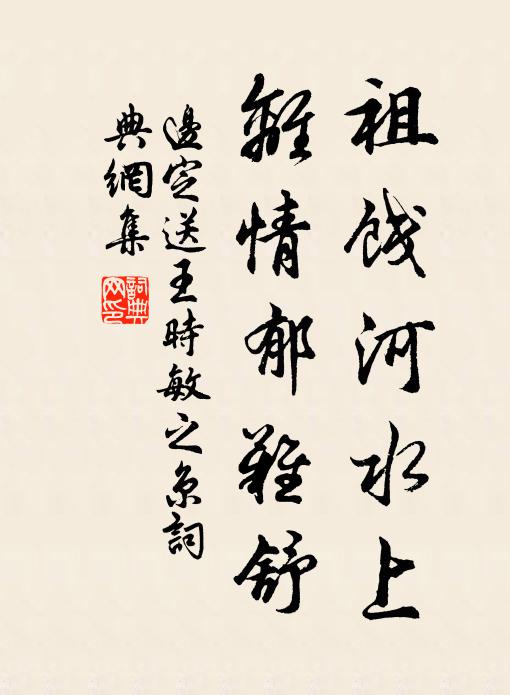 祖餞河水上
離情郁難舒
邊定送王時敏之京詞
典網集
詞典网印